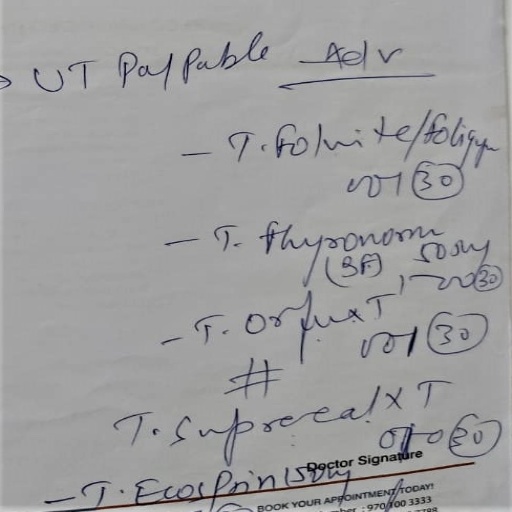 UT Palpable Adv
- T. Folvite/Foligyn
001 (30)
- T. Thyronorm 50mg
(BF) 1-00 (30)
- T. Orfux T
001 (30)
#
T. Supracal XT
010 (30)
Doctor Signature
- T. Ecosprin 150mg
BOOK YOUR APPOINTMENT TODAY!
: 970 100 3333